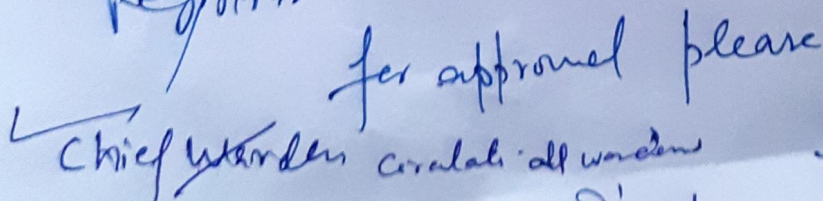 for approval please
Chief Warden circulate all wardens